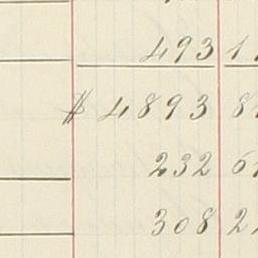 493 1
$ 4893 8
232 6
308 2